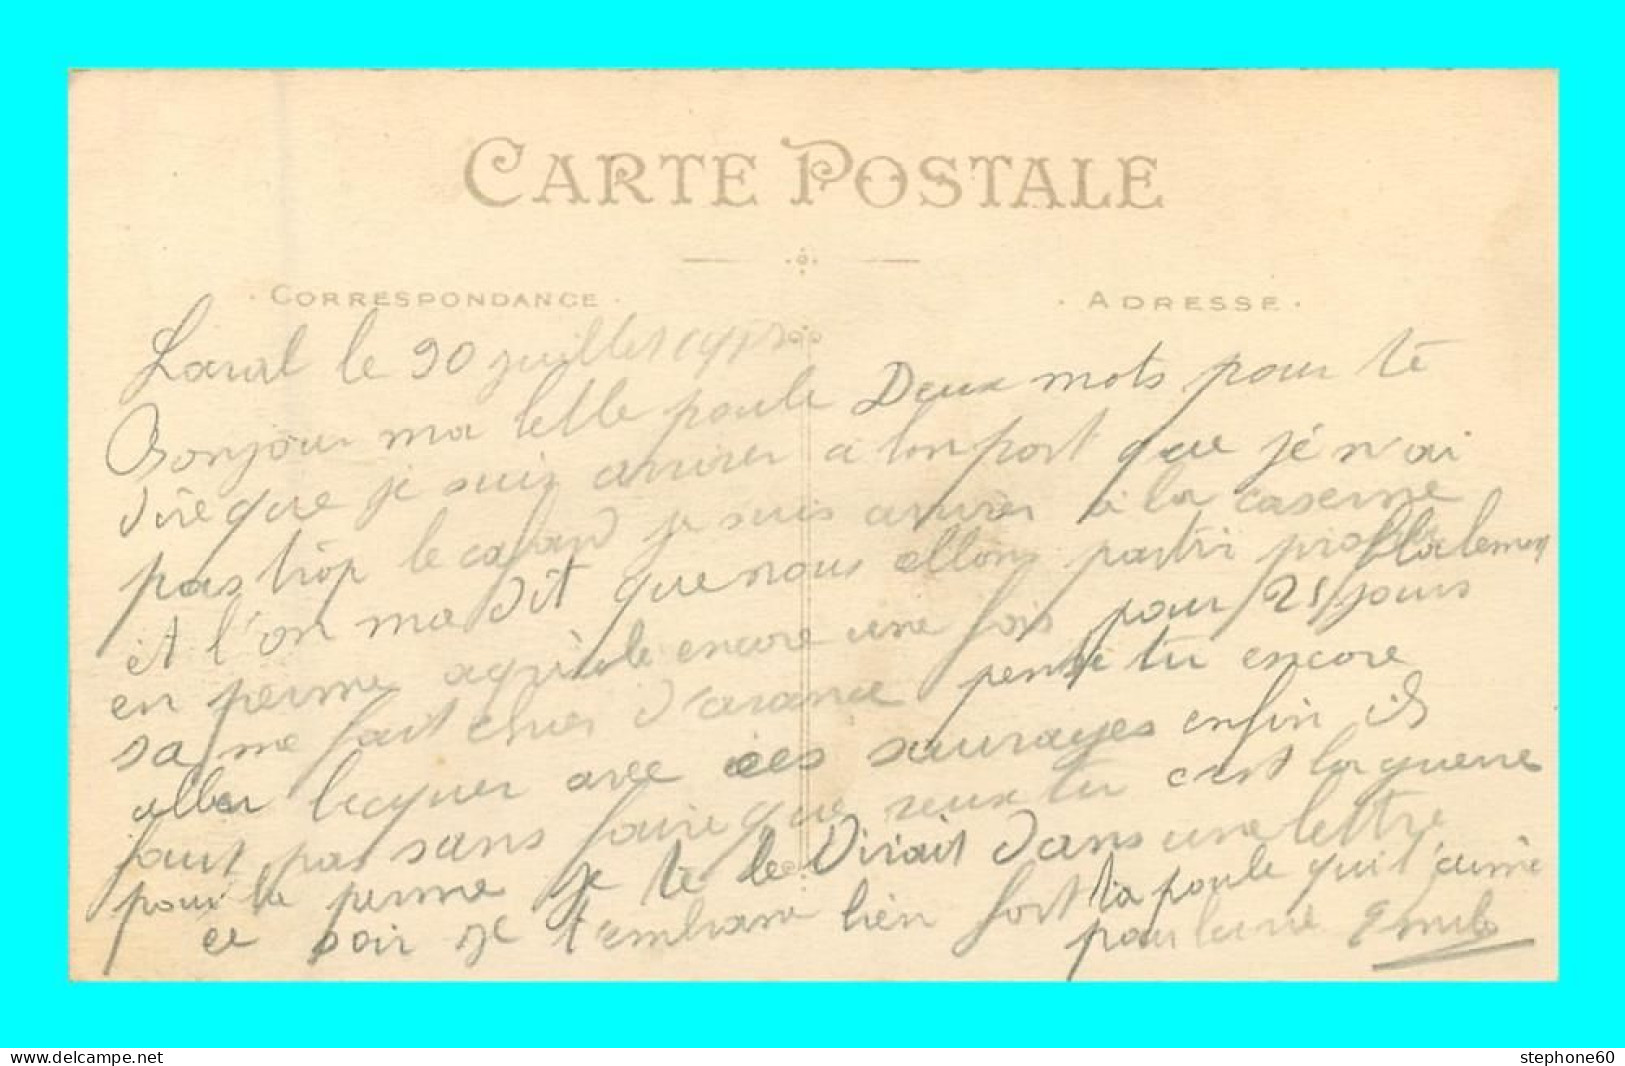 CARTE POSTALE
CORRESPONDANCE
ADRESSE
Laval le 30 juillet
Bonjour ma belle poule Deux mots pour te
dire que je suis arriver a bon port que jé n'ai
pas trop le cafard je suis arriver à la caserne
et l'on ma dit que nous allons partir probablement
en perme agricole encore une fois pour 25 jours
sa me fait chier d'avance pense tu encore
aller avec ces sauvages enfin ils
faut pas sans faire que veux tu c'est la guerre
pour la perme je te le dirait dans une lettre
ce soir je t'embrasse bien fort ta poule qui t'aime
pour la vie Emile
stephone60
www.delcampe.net